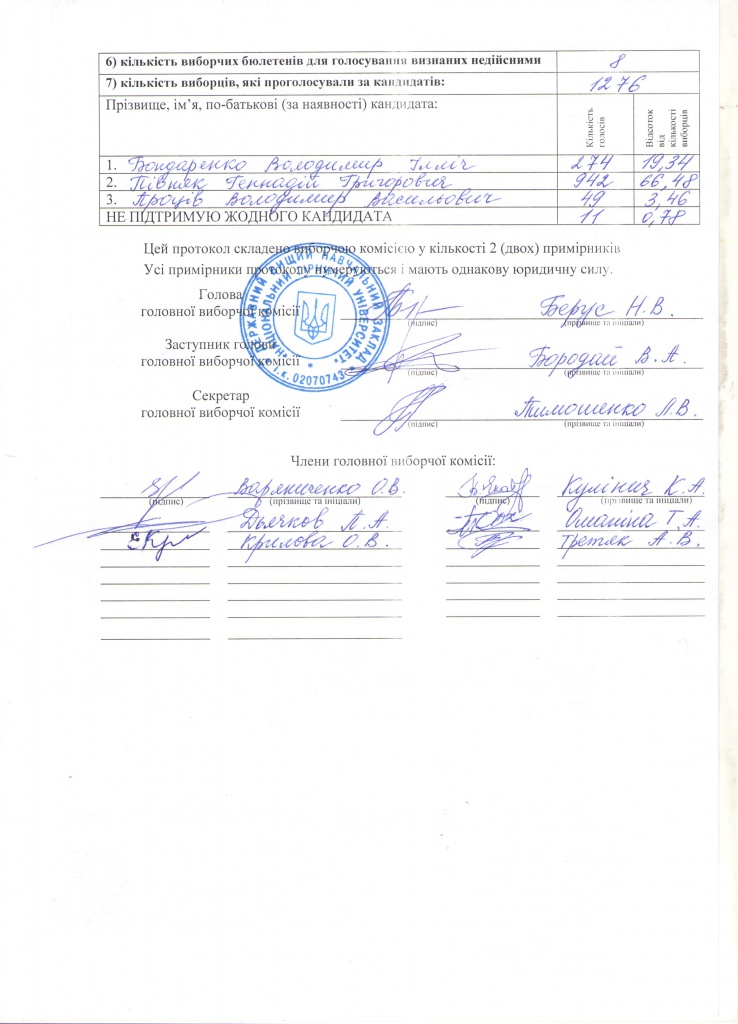 6) кількість виборчих бюлетенів для голосування визнаних недійсними 8
7) кількість виборців, які проголосували за кандидатів: 1276
Прізвище, ім’я, по-батькові (за наявності) кандидата: Кількість голосів Відсоток від кількості виборців
1. Бондаренко Володимир Ілліч 274 19,34
2. Півняк Геннадій Григорович 942 66,48
3. Проців Володимир Васильович 49 3,46
НЕ ПІДТРИМУЮ ЖОДНОГО КАНДИДАТА 11 0,78
Цей протокол складено виборчою комісією у кількості 2 (двох) примірників
Усі примірники протоколу нумеруються і мають однакову юридичну силу.
ДЕРЖАВНИЙ ВИЩИЙ НАВЧАЛЬНИЙ ЗАКЛАД
«НАЦІОНАЛЬНИЙ ГІРНИЧИЙ УНІВЕРСИТЕТ»
* І.К. 02070743 *
Голова
головної виборчої комісії Берус Н.В.
(підпис) (прізвище та ініціали)
Заступник голови
головної виборчої комісії Бородай В.А.
(підпис) (прізвище та ініціали)
Секретар
головної виборчої комісії Тимошенко Л.В.
(підпис) (прізвище та ініціали)
Члени головної виборчої комісії:
Варяниченко О.В. Кулінич К.А.
(підпис) (прізвище та ініціали) (підпис) (прізвище та ініціали)
Дьячков П.А. Ошапіна Т.А.
Крилова О.В. Третяк А.В.